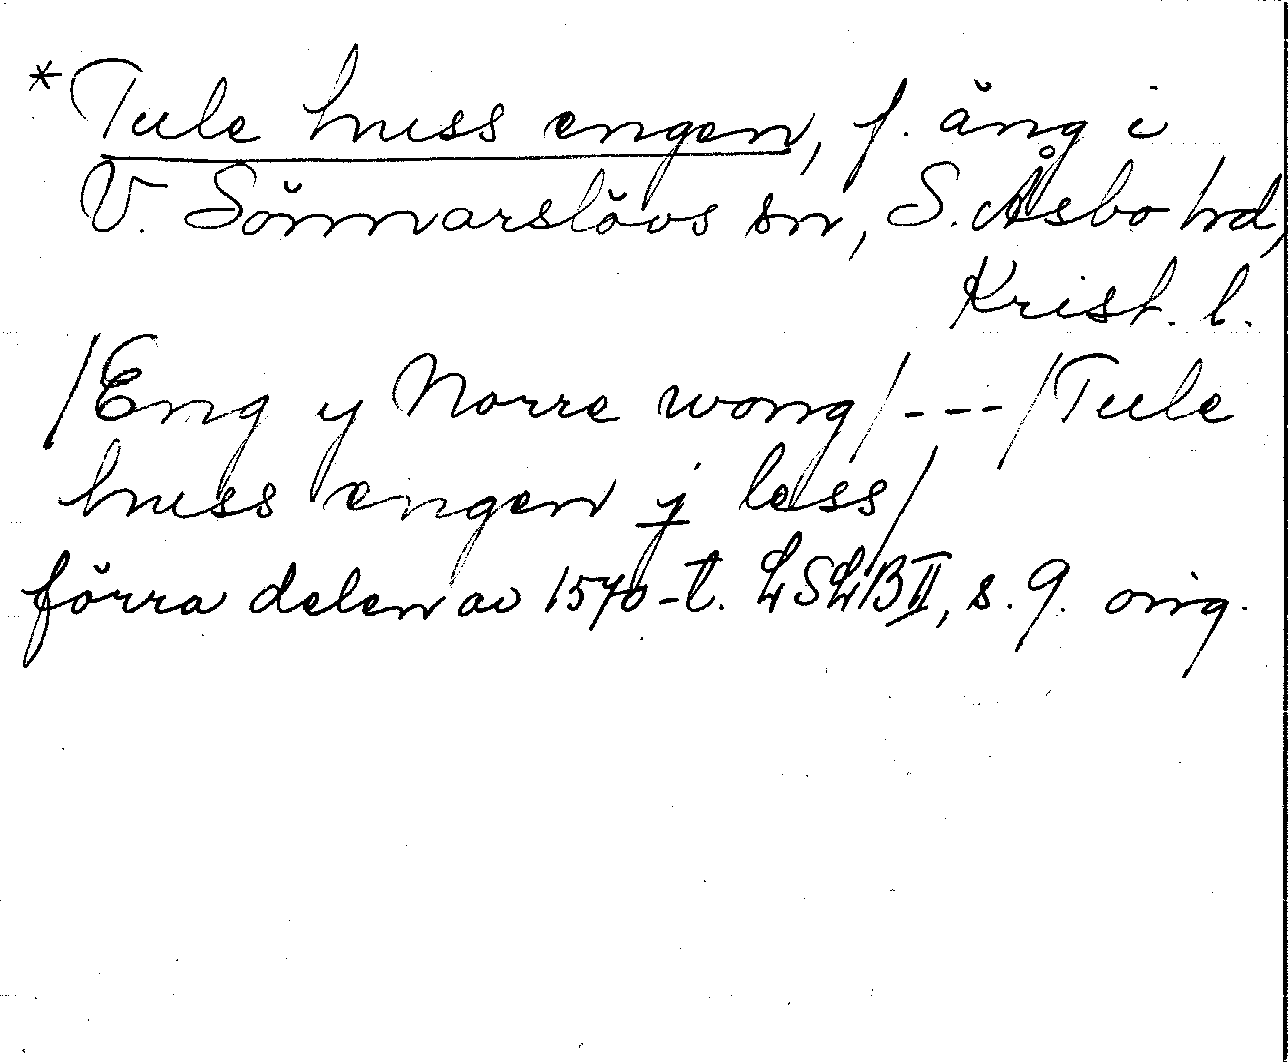 *Tule huss engen, f. äng i
V. Sönnarslövs sn, S. Åsbo hd,
Krist. l.
/Eng y Norre wong/---/Tule
huss engen jless/
förra delen av 1570-t. LSLB II, s. 9. orig.